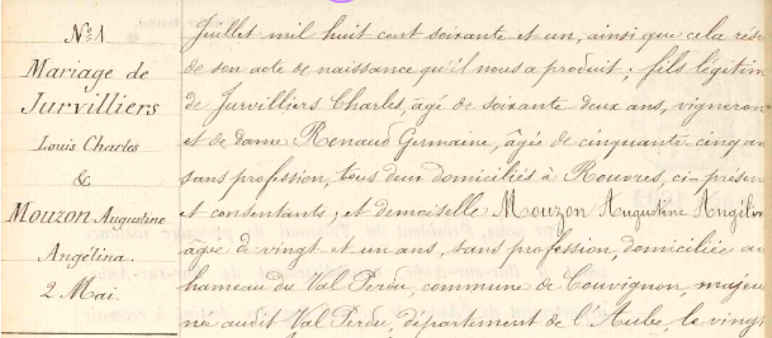 N° 1
Mariage de
Jurvilliers
Louis Charles
&
Mouzon Augustine
Angélina.
2 Mai.
Juillet mil huit cent soixante et un, ainsi que cela rés
de son acte de naissance qu'il nous a produit ; fils légitim
de Jurvilliers Charles, âgé de soixante deux ans, vigneron
et de dame Renaud Germaine, âgée de cinquante-cinq an
sans profession, tous deux domiciliés à Rouvres, ci-présen
et consentants ; et demoiselle Mouzon Augustine Angélin
âgée de vingt et un ans, sans profession, domiciliée au
hameau du Val Perdu, commune de Couvignon, majeu
née audit Val Perdu, département de l'Aube, le vingt